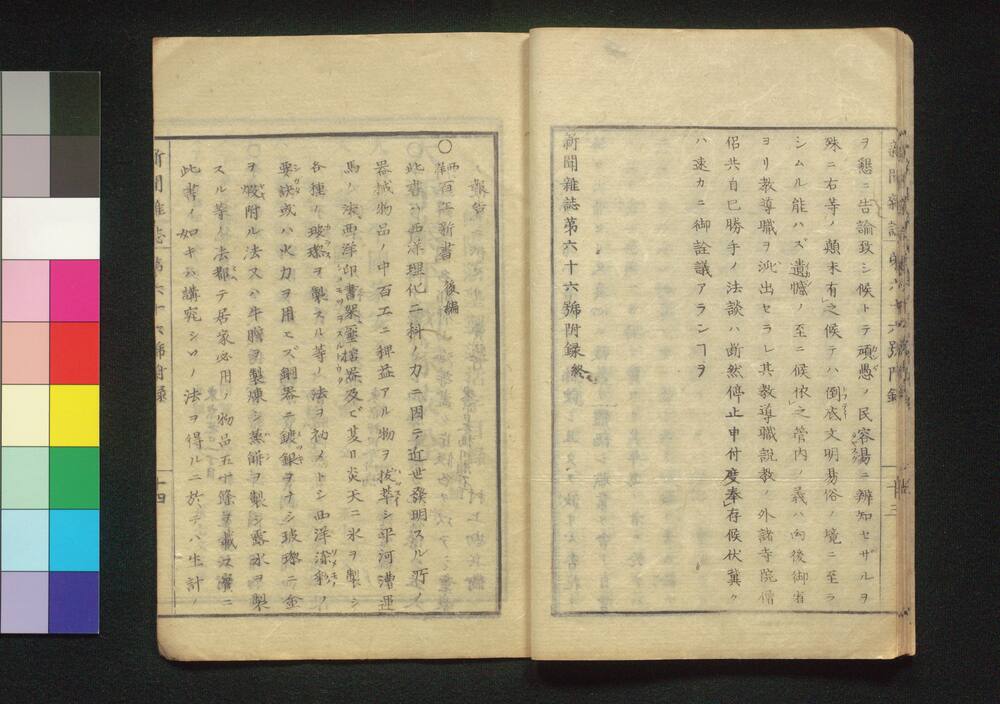 ヲ懇ニ告諭致シ候トテ頑愚ノ民容易ニ辨知セザルヲ
殊ニ右等ノ顛末有之候テハ倒底文明易俗ノ境ニ至ラ
シムル能ハズ遺憾ノ至ニ候依之管内ノ義ハ向後御省
ヨリ教導職ヲ派出セラレ其教導職説教ノ外諸寺院僧
侶共自己勝手ノ法談ハ断然停止申付度奉存候伏冀ク
ハ速カニ御詮議アランヿヲ
新聞雑誌第六十六號附録終
報告
〇西洋百工新書 後編
此書ハ西洋理化二科ノ力ニ因テ近世發明スル所ノ
器械物品ノ中百工ニ裨益アル物ヲ抜萃シ平河漕運
馬ノ法西洋印書架靈棺器及ビ夏日炎天ニ氷ヲ製シ
各種ノ玻璨ヲ製スル等ノ法ヲ初メトシ西洋染彩ノ
要訣或ハ火力ヲ用エズ銅器ニ鍍銀ヲナシ玻璨ニ金
ヲ焼附ル法又ハ牛膽ヲ製煉シ蒸餅ヲ製シ露氷ヲ製
スル等ノ法都テ居家必用ノ物品五十餘ヲ載ス
此書ノ如キハ講究シソノ法ヲ得ルニ於テハ生計ノ
新聞雑誌 第六十六號附録 十四